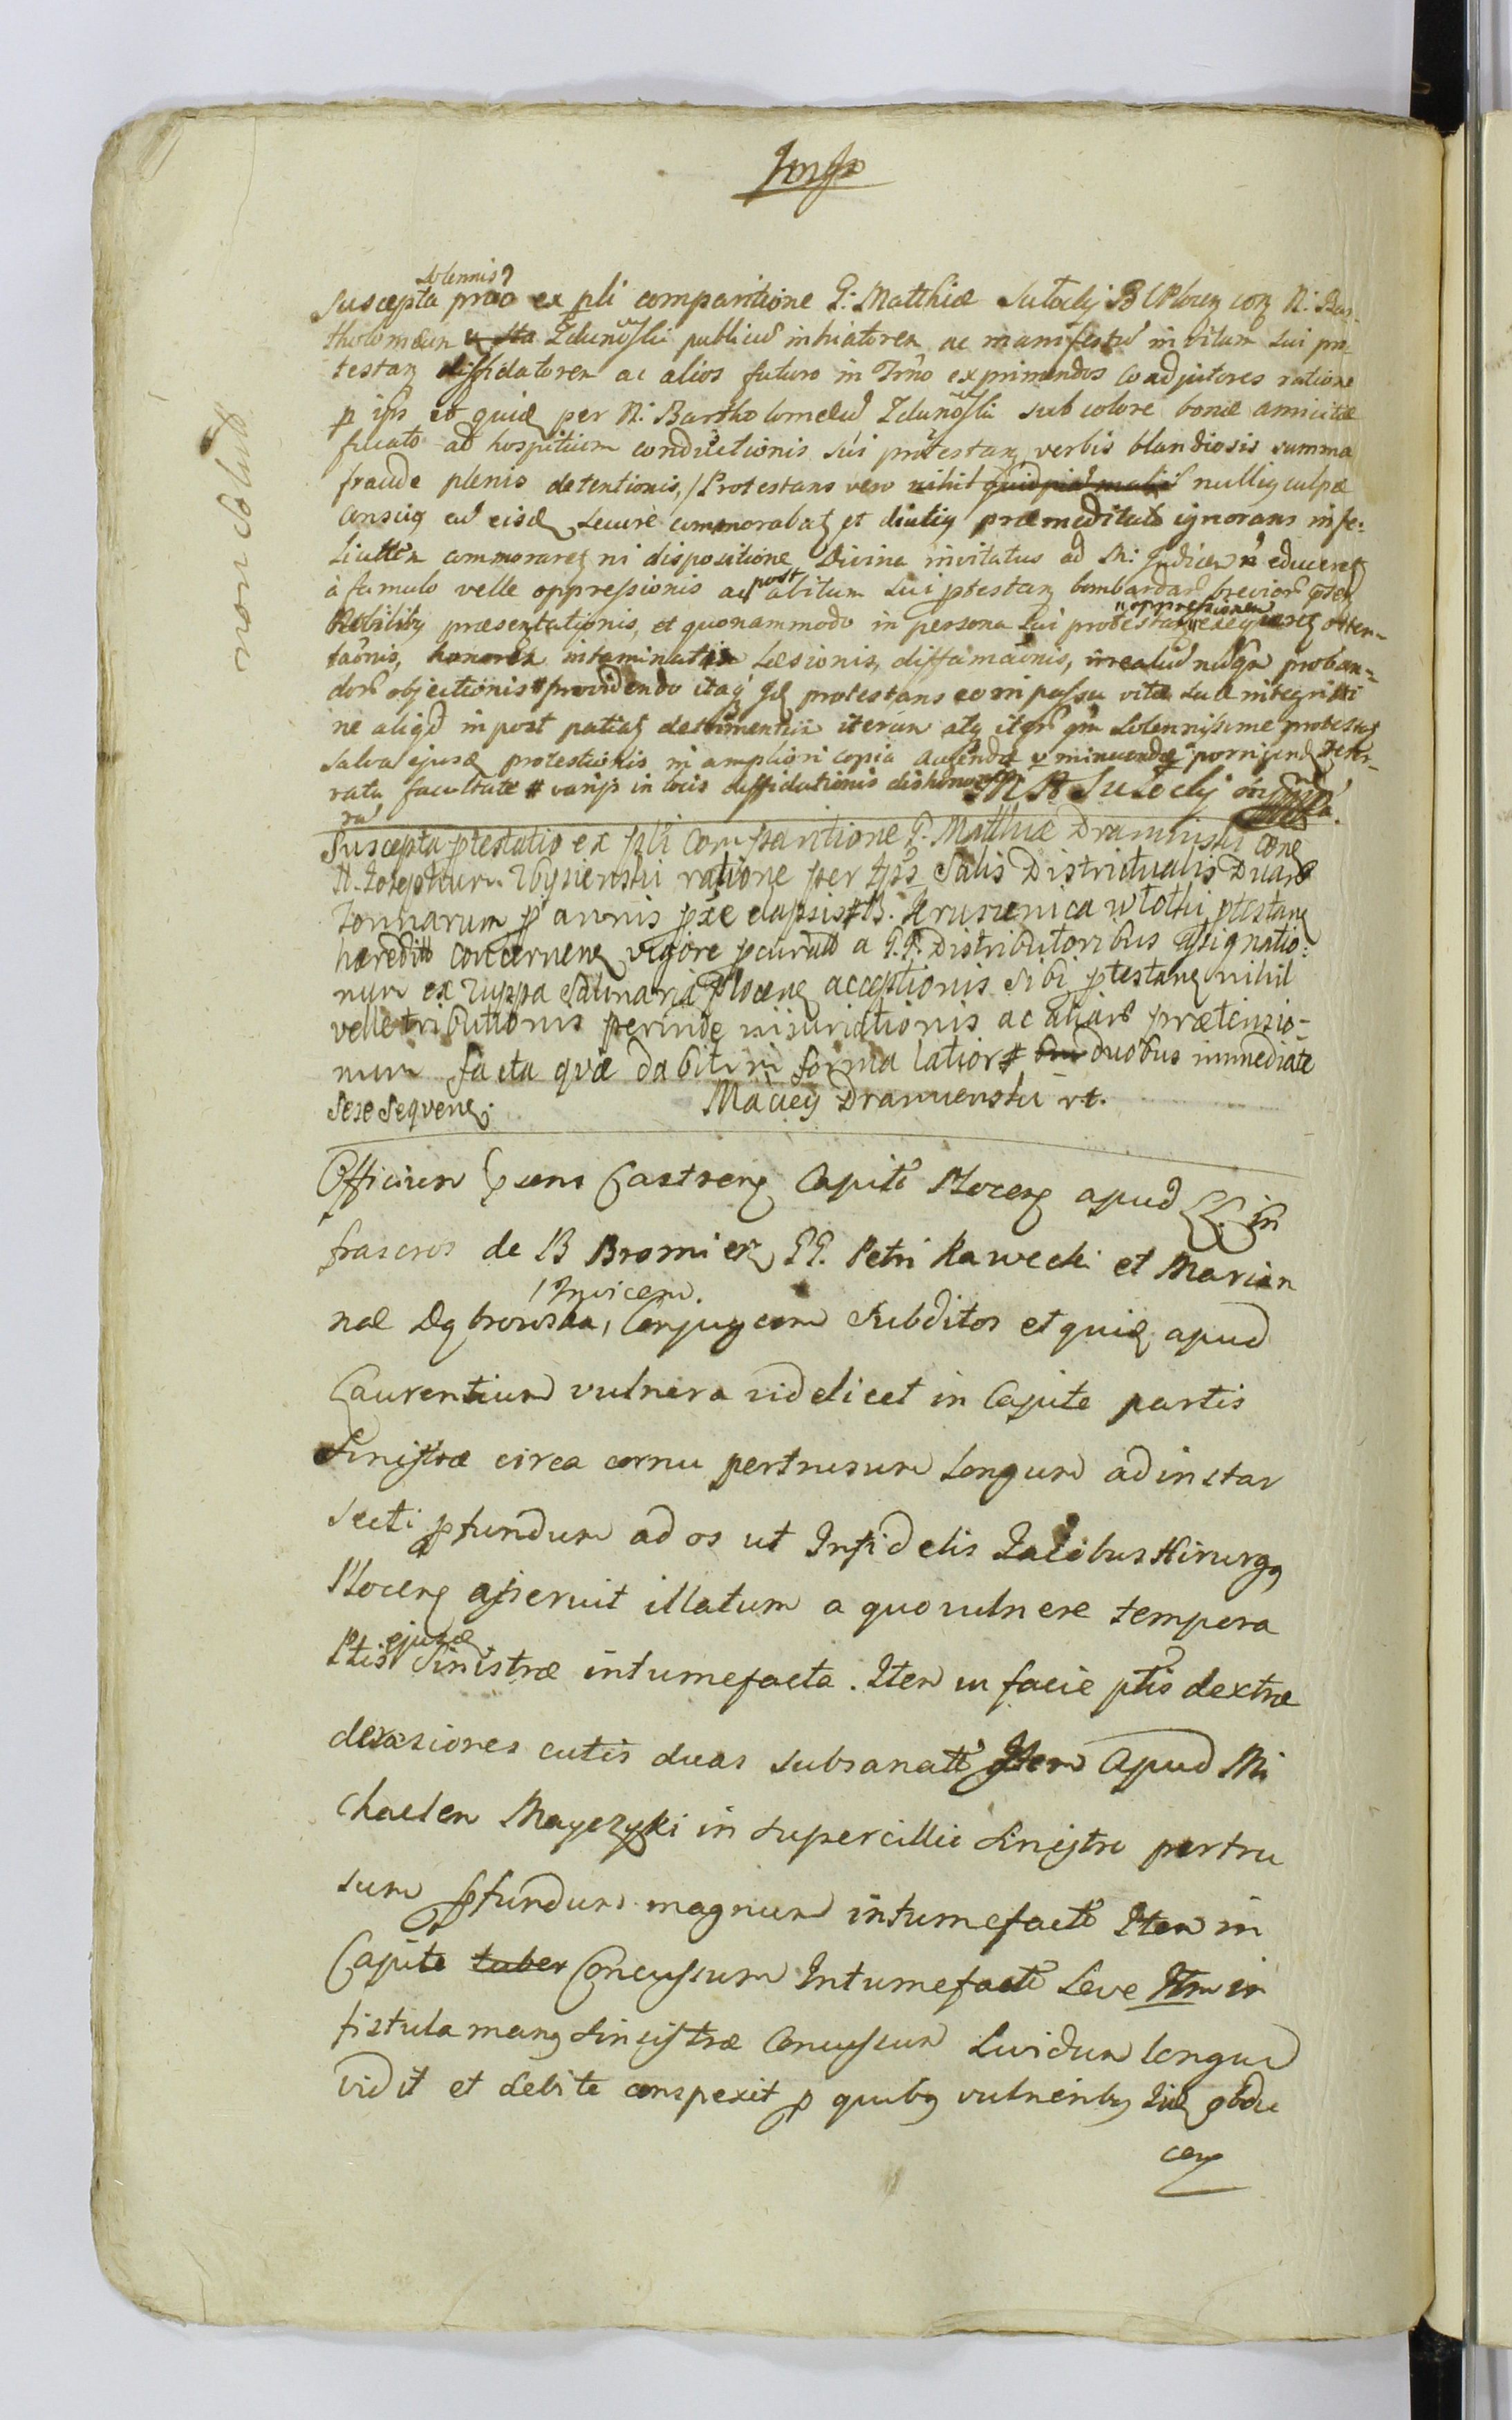 non solutt
solennis
Suscepta prottõ ex pli comparitione G: Matthiæ Sutocky B C Plocen con N: Bar-
tholomæum Zdunoski publicũ inhiatorem ac manifestũ in vitam sui pro-
testan diffidatorem ac alios futuro in Trño exprimendos coadjutores ratione
p ips eo quia per N: Bartholomeũ Zdunoski sub colore bonæ amicitiæ
fucato ad hospitium conductionis sui protestan verbis blandiosis summa
fraude plenis detentionis, Protestans vero nihil quidpiã mali nullius culpæ
conscius cũ eisd secure commorabat et diutius præmeditato ignorans infe-
commoraret ni dispositione Divina invitatus ad M: Judicem educeret
à famulo velle oppressionis ac post abitum sui ptestan bombardar brevior
Nobilibus præsentationis, et quonammodo in persona sui protestan oppressionem exequeret osten-
taõnis, honorem intaminatum Læsionis, diffamaõnis, proban-
dor objectionis providendo itaq Id protestans eo in passu vitæ suæ integritti
ne aliqd in post patiat detrimentum iterum atq itẽr solennissime protestat
salva ejusd protestionis in ampliori copia augenda v minuenda porrigend reser-
rata facultate varijs in locis diffidationis M Sutocky mpp
Suscepta ptestatio ex pli comparitione G. Matthiæ Draminski con
N. Josephum Zbysienski ratione per ips Salis Districtualis Duarũ
Tonnarum p annis pxe elapsis B. Kruszenica włotki ptestan
hæreditt concernen vigore pcuratt a G.G. Distributoribus assignatio-
num ex Zuppa Salinaria Plocen acceptionis sibi ptestan nihil
velle tributionis perinde injurictionis ac aliarũ prætensio-
num facta quæ dabitur in forma latiori duobus immediate
sese sequen. Maciey Dramienski rt.
Officium psens Castren Capite Plocen apud LL. in
frascros de B Bromierz GG. Petri Rawecki et Marian
Invicem.
næ Dąbrowska, Conjugum Subditos et quid apud
Laurentium vulnera videlicet in Capite partis
Sinistræ circa cornu pertrusum longum ad instar
secti pfundum ad os ut Infidelis Jacobus Hirurgg
Plocen asseruit illatum a quo vulnere tempora
ejusd
Ptis Sinistræ intumefacta. Item in facie ptis dextræ
derasiones cutis duas subsanatt Item Apud Mi
chaelem Mayczyki in supercillio sinistro pertru
sum pfundum magnum intumefactt Item in
Capite tuber Concussum Intumefactt Leve Itm in
fistula manus sinistræ Concussum Lividum longum
vidit et debite conspexit p quibus vulneribus obdu
cen